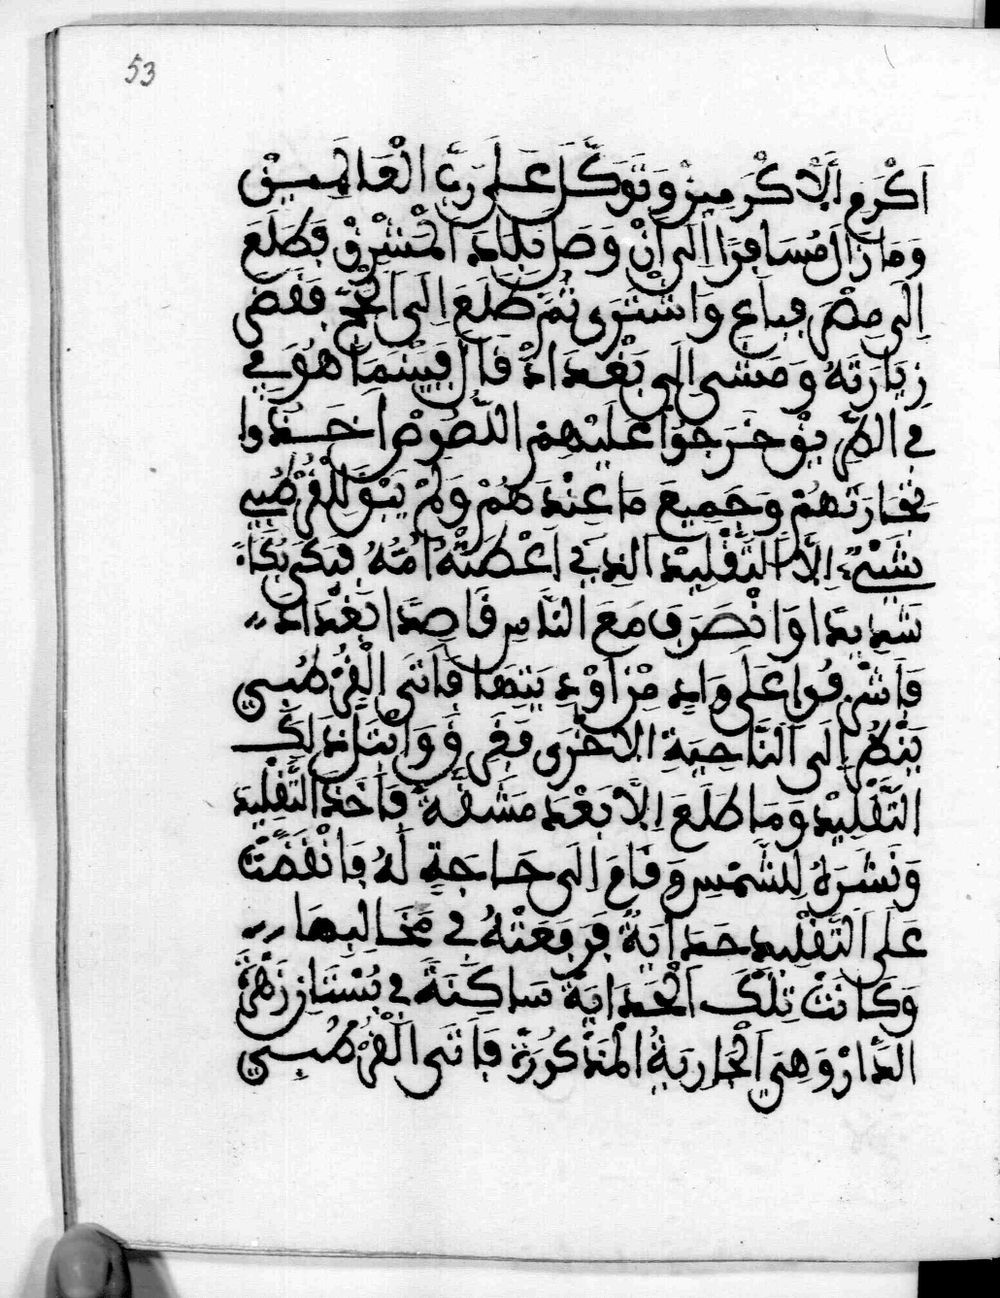 53
اَكْرَمِ اَلْاَكْرَمِينَ وَتَوَكَّلَ عَلَى رَبِّ الْعَالَمِينَ
وَمَا زَالَ مُسَافِرًا اِلَى اَنْ وَصَلَ بَلَادَ الْمَشْرِقْ فَطَلَعَ
اِلَى مِصْرَ فبَاعَ وَاشْتَرَى ثُمَّ طَلَعَ اِلَى الْحَجِّ فَقَضَى
زِيَارَتَهُ وَمَشَى اِلَى بَغْدَادْ قَالَ فَبَيْنَمَا هُوَ فِي
فِي الطَّرِيقْ خَرَجُوا عَلَيْهِمْ اللُّصُوصْ اَخَذُوا
تِجَارَتَهُمْ وَجَمِيعَ مَا عِنْدَهُمْ وَلَمْ يَبْقَ لِلْقُرْطُبِيِّ
شَيْءٌ اِلَّا التَّقْلِيدْ الذِي اَعْطَتْهُ اُمُّهُ فبَكَى بُكَاءً
شَدِيدًا وَانْصَرَفَ مَعَ النَّاسِ قَاصِدًا بَغْدَادْ
فَاَشْرَفُوا عَلَى وَادٍ مِنْ اَوْدِيَتِهَا فَاَتَى الْقُرْطُبِي
يَنْظُرُ اِلَى النَّاحِيَةِ الْاُخْرَى فَغَرِقَ وَابْتَلَّ ذَلِكَ
التَّقْلِيدْ وَمَا طَلَعَ اِلَّا بَعْدَ مَشَقَّةٍ فَاَخَذَ التَّقْلِيدَ
وَنَشَرَهُ لِلشَّمْسِ وَقَامَ اِلَى حَاجَةٍ لَهُ فَانْقَضَّتْ
عَلَى التَّقْلِيد حِدَايَةٌ فَرَفَعَتْهُ فِي مَخَالِبِهَا
وَكَانَتْ تِلْكَ الْحِدَايَةُ سَاكِنَةً فِي بُسْتَانِ زَهْرَةِ
الدَّارْ وَهِيَ الْجَارِيَةُ الْمَذْكُورَةُ فَاَتَى الْقُرْطُبِي